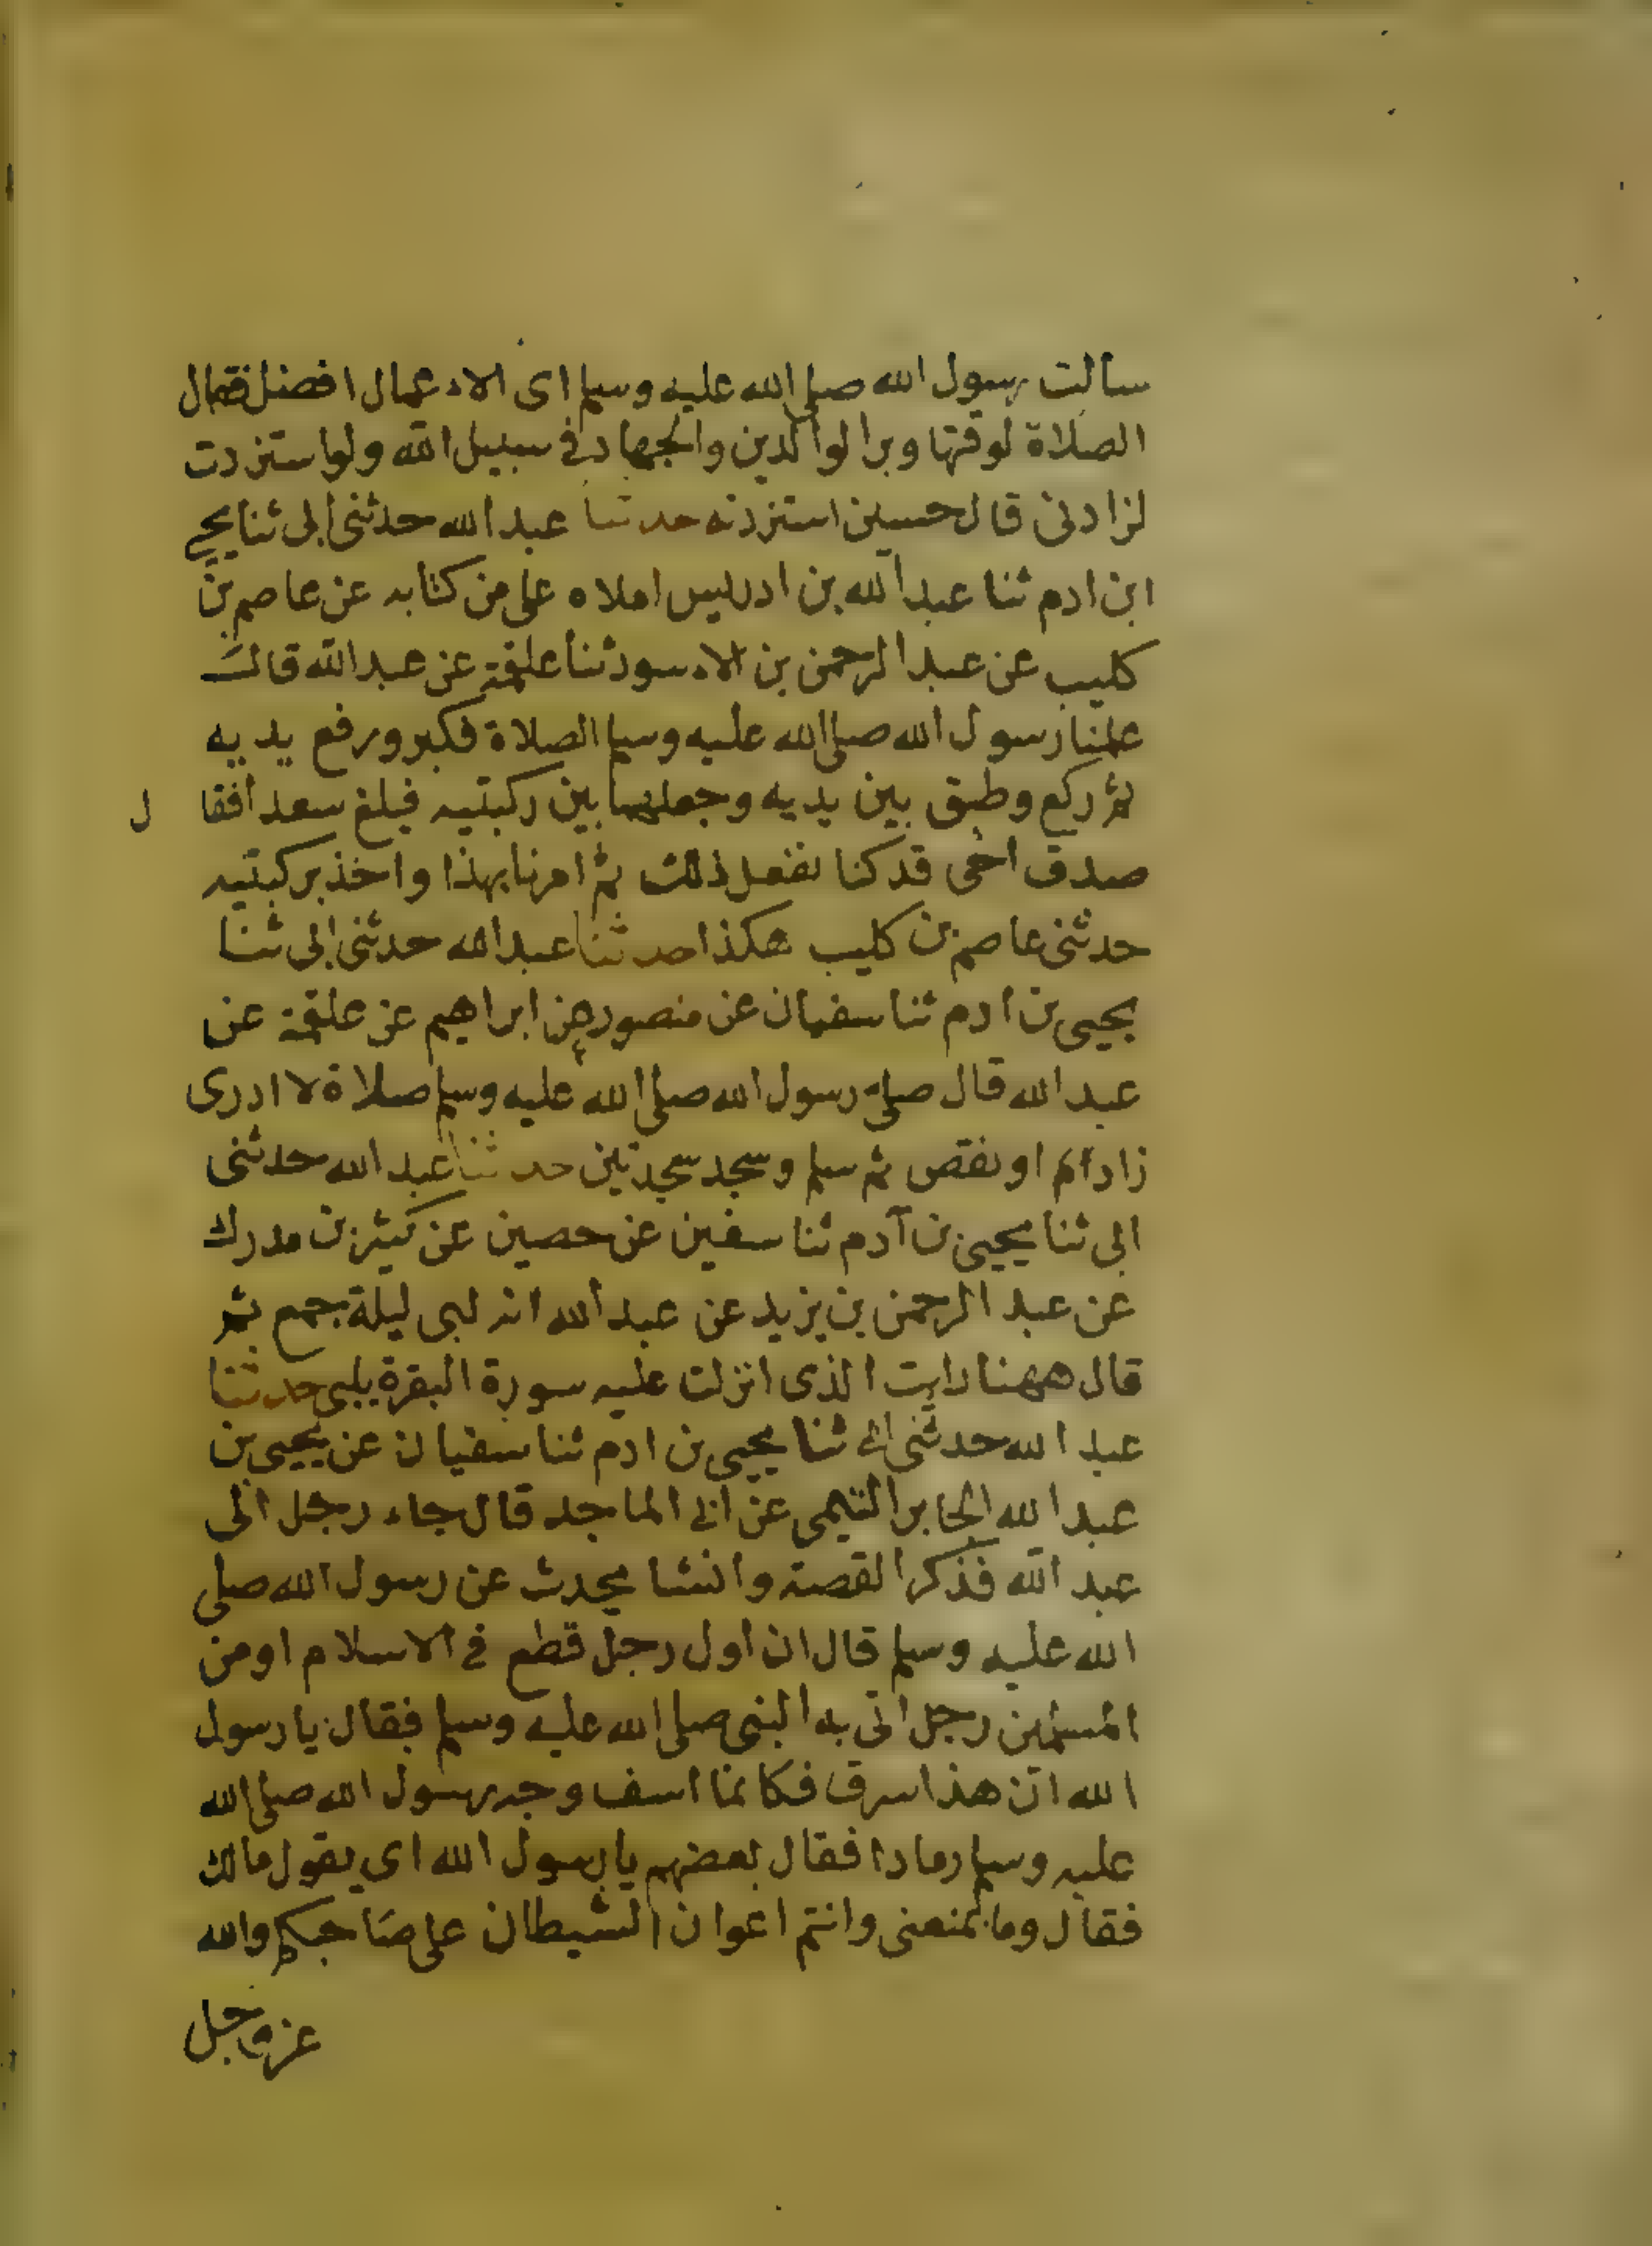 سألت رسول الله صلى الله عليه وسلم اى الاعمال افضل فقال
الصلاة لوقتها وبر الوالدين والجهاد في سبيل الله ولو استزدت
لزادنى قال حسين استزدته حدثنا عبد الله حدثنى ابى ثنا يحيى
ابن ادم ثنا عبد الله بن ادريس املاه على من كتابه عن عاصم بن
كليب عن عبد الرحمن بن الاسود ثنا علقمة عن عبد الله قال
علمنا رسول الله صلى الله عليه وسلم الصلاة فكبر ورفع يديه
ثم ركع وطبق بين يديه وجعلهما بين ركبتيه فبلغ سعدا فقال
صدق اخى قد كنا نفعل ذلك ثم امرنا بهذا واخذ بركبتيه
حدثنى عاصم بن كليب هكذا حدثنا عبد الله حدثنى ابى ثنا
يحيى بن ادم ثنا سفيان عن منصور عن ابراهيم عن علقمة عن
عبد الله قال صلى رسول الله صلى الله عليه وسلم صلاة لا ادرى
زاد ام نقص ثم سلم وسجد سجدتين حدثنا عبد الله حدثنى
ابى ثنا يحيى بن آدم ثنا سفين عن حصين عن كثير بن مدرك
عن عبد الرحمن بن يزيد عن عبد الله انه لبى ليلة جمع ثم
قال ههنا رايت الذى انزلت عليه سورة البقرة يلبى حدثنا
عبد الله حدثنى ابى ثنا يحيى بن ادم ثنا سفيان عن يحيى بن
عبد الله الجابر التيمى عن ابى الماجد قال جاء رجل الى
عبد الله فذكر القصة وانشا يحدث عن رسول الله صلى
الله عليه وسلم قال ان اول رجل قطع في الاسلام او من
المسلمين رجل اتى به النبى صلى الله عليه وسلم فقال يا رسول
الله ان هذا سرق فكانما اسف وجه رسول الله صلى الله
عليه وسلم رمادا فقال بعضهم يا رسول الله اى يقول مالك
فقال وما يمنعنى وانتم اعوان الشيطان على صاحبكم والله
عز وجل